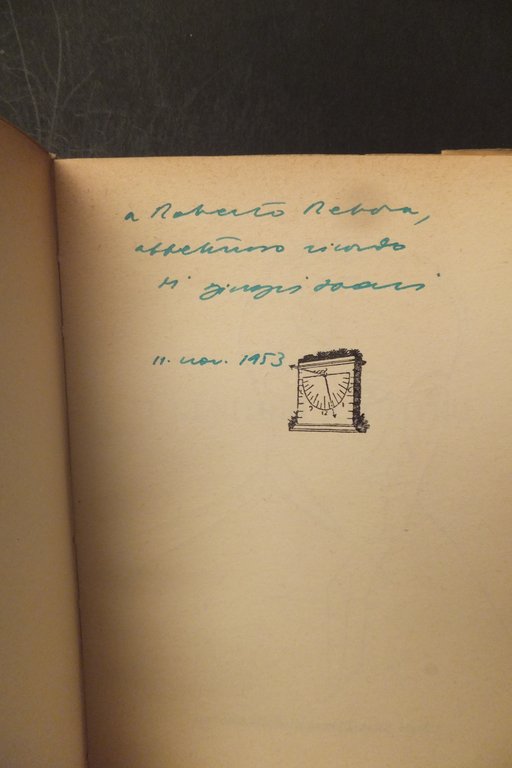 a Roberto Rebora,
affettuoso ricordo
di Giorgio Soavi
11. nov. 1953